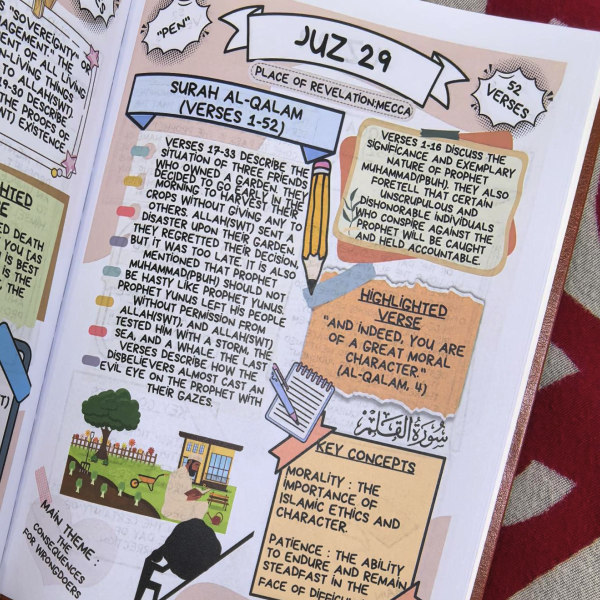 S "SOVEREIGNTY" OR
AGEMENT." THE
MENT OF ALL LIVING
N-LIVING THINGS
TO ALLAH(SWT).
19-30 DESCRIBE
THE PROOFS OF
WT) EXISTENCE.
GHTED
ED DEATH
YOU (AS
H IS BEST
IS THE
THE
"PEN"
JUZ 29
PLACE OF REVELATION:MECCA
52
VERSES
SURAH AL-QALAM
(VERSES 1-52)
VERSES 17-33 DESCRIBE THE
SITUATION OF THREE FRIENDS
WHO OWNED A GARDEN. THEY
DECIDED TO GO EARLY IN THE
MORNING TO HARVEST THEIR
CROPS WITHOUT GIVING ANY TO
OTHERS. ALLAH(SWT) SENT A
DISASTER UPON THEIR GARDEN.
THEY REGRETTED THEIR DECISION,
BUT IT WAS TOO LATE. IT IS ALSO
MENTIONED THAT PROPHET
MUHAMMAD(PBUH) SHOULD NOT
BE HASTY LIKE PROPHET YUNUS.
PROPHET YUNUS LEFT HIS PEOPLE
WITHOUT PERMISSION FROM
ALLAH(SWT), AND ALLAH(SWT)
TESTED HIM WITH A STORM, THE
SEA, AND A WHALE. THE LAST
VERSES DESCRIBE HOW THE
DISBELIEVERS ALMOST CAST AN
EVIL EYE ON THE PROPHET WITH
THEIR GAZES.
VERSES 1-16 DISCUSS THE
SIGNIFICANCE AND EXEMPLARY
NATURE OF PROPHET
MUHAMMAD(PBUH). THEY ALSO
FORETELL THAT CERTAIN
UNSCRUPULOUS AND
DISHONORABLE INDIVIDUALS
WHO CONSPIRE AGAINST THE
PROPHET WILL BE CAUGHT
AND HELD ACCOUNTABLE.
HIGHLIGHTED
VERSE
"AND INDEED, YOU ARE
OF A GREAT MORAL
CHARACTER."
(AL-QALAM, 4)
سُورَةُ القَلَمِ
KEY CONCEPTS
MORALITY : THE
IMPORTANCE OF
ISLAMIC ETHICS AND
CHARACTER.
PATIENCE : THE ABILITY
TO ENDURE AND REMAIN
STEADFAST IN THE
FACE OF
MAIN THEME :
THE
CONSEQUENCES
FOR WRONGDOERS